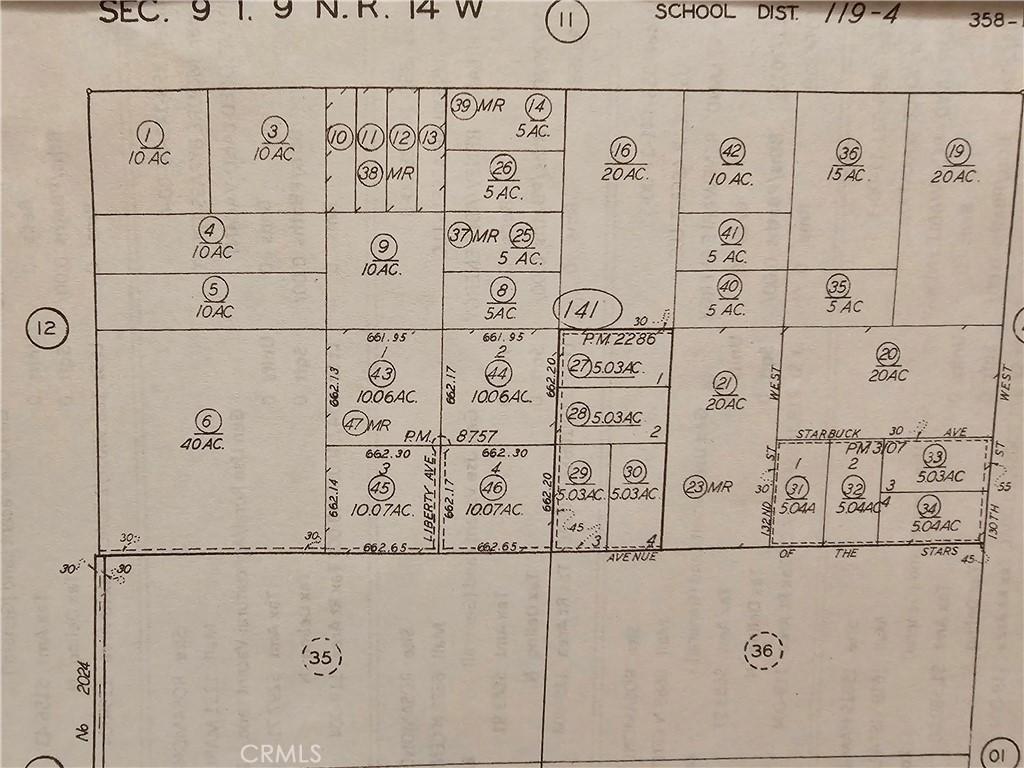 SEC. 9 T. 9 N. R. 14 W
11
SCHOOL DIST. 119-4
358-
1
10 AC
3
10 AC
10
11
12
13
38 MR
39 MR
14
5 AC.
26
5 AC.
16
20 AC.
42
10 AC.
36
15 AC.
19
20 AC.
4
10 AC
9
10 AC.
37 MR
25
5 AC.
41
5 AC.
5
10 AC
8
5 AC.
40
5 AC.
35
5 AC
141
12
30
661.95
661.95
P.M. 2286
1
43
10.06 AC.
662.13
662.17
2
44
10.06 AC.
662.20
27 5.03 AC.
1
28 5.03 AC.
2
21
20 AC
WEST
20
20 AC
WEST
6
40 AC.
47 MR
P.M. 8757
STARBUCK 30 AVE
662.30
662.30
3
45
10.07 AC.
662.14
LIBERTY AVE.
662.17
4
46
10.07 AC.
662.20
29
5.03 AC.
30
5.03 AC.
45
3
4
23 MR
30
132ND ST
PM 3107
1
31
5.04 A
2
32
5.04 AC
33
5.03 AC
3
4
34
5.04 AC
130TH ST
55
30
30
662.65
662.65
AVENUE OF THE STARS
45
30
30
35
36
No 2024
CRMLS
10